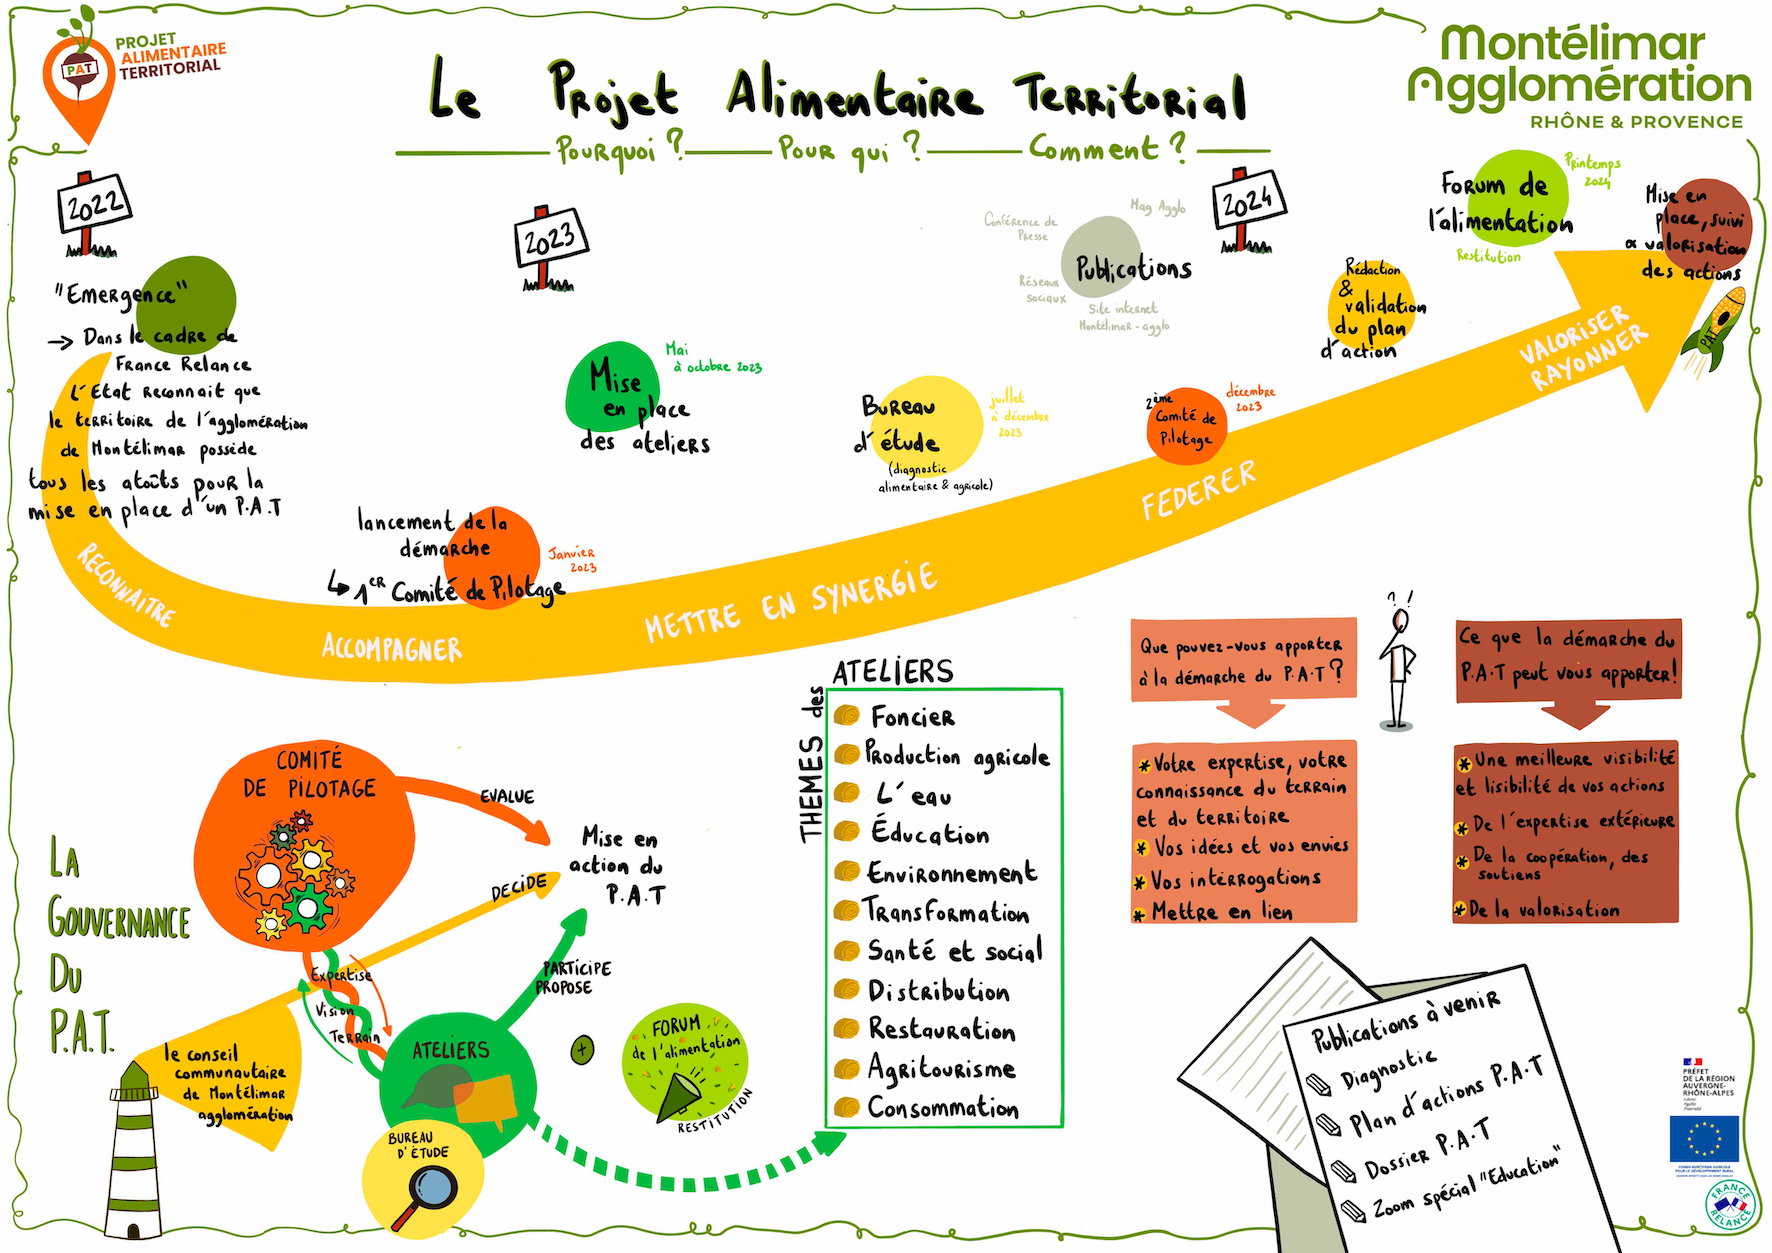 PROJET
ALIMENTAIRE
TERRITORIAL
PAT
Le Projet Alimentaire Territorial
Pourquoi ? Pour qui ? Comment ?
Montélimar
Agglomération
RHÔNE & PROVENCE
2022
"Emergence"
→ Dans le cadre de
France Relance
L'Etat reconnait que
le territoire de l'agglomération
de Montélimar possède
tous les atoûts pour la
mise en place d'un P.A.T
2023
lancement de la
démarche
↳ 1er Comité de Pilotage
Janvier
2023
Mise
en place
des ateliers
Mai
à octobre 2023
Bureau
d'étude
(diagnostic
alimentaire & agricole)
juillet
à décembre
2023
Conférence de
Presse
Mag Agglo
Publications
Réseaux
sociaux
Site internet
Montélimar-agglo
2ème
Comité de
Pilotage
décembre
2023
2024
Rédaction
&
validation
du plan
d'action
Forum de
l'alimentation
Restitution
Printemps
2024
Mise en
place, suivi
& valorisation
des actions
PAT
RECONNAITRE
ACCOMPAGNER
METTRE EN SYNERGIE
FEDERER
VALORISER
RAYONNER
LA
GOUVERNANCE
DU
P.A.T.
COMITÉ
DE PILOTAGE
EVALUE
DECIDE
PARTICIPE
PROPOSE
Mise en
action du
P.A.T
Expertise
Vision
Terrain
le conseil
communautaire
de Montélimar
agglomération
ATELIERS
BUREAU
D'ÉTUDE
+
FORUM
de l'alimentation
RESTITUTION
THEMES des
ATELIERS
Foncier
Production agricole
L'eau
Éducation
Environnement
Transformation
Santé et social
Distribution
Restauration
Agritourisme
Consommation
Que pouvez-vous apporter
à la démarche du P.A.T ?
* Votre expertise, votre
connaissance du terrain
et du territoire
* Vos idées et vos envies
* Vos interrogations
* Mettre en lien
? !
Ce que la démarche du
P.A.T peut vous apporter !
* Une meilleure visibilité
et lisibilité de vos actions
* De l'expertise extérieure
* De la coopération, des
soutiens
* De la valorisation
Publications à venir
Diagnostic
Plan d'actions P.A.T
Dossier P.A.T
Zoom spécial "Education"
PRÉFET
DE LA RÉGION
AUVERGNE-
RHÔNE-ALPES
Liberté
Égalité
Fraternité
FONDS EUROPÉEN AGRICOLE
POUR LE DÉVELOPPEMENT RURAL
FRANCE
RELANCE